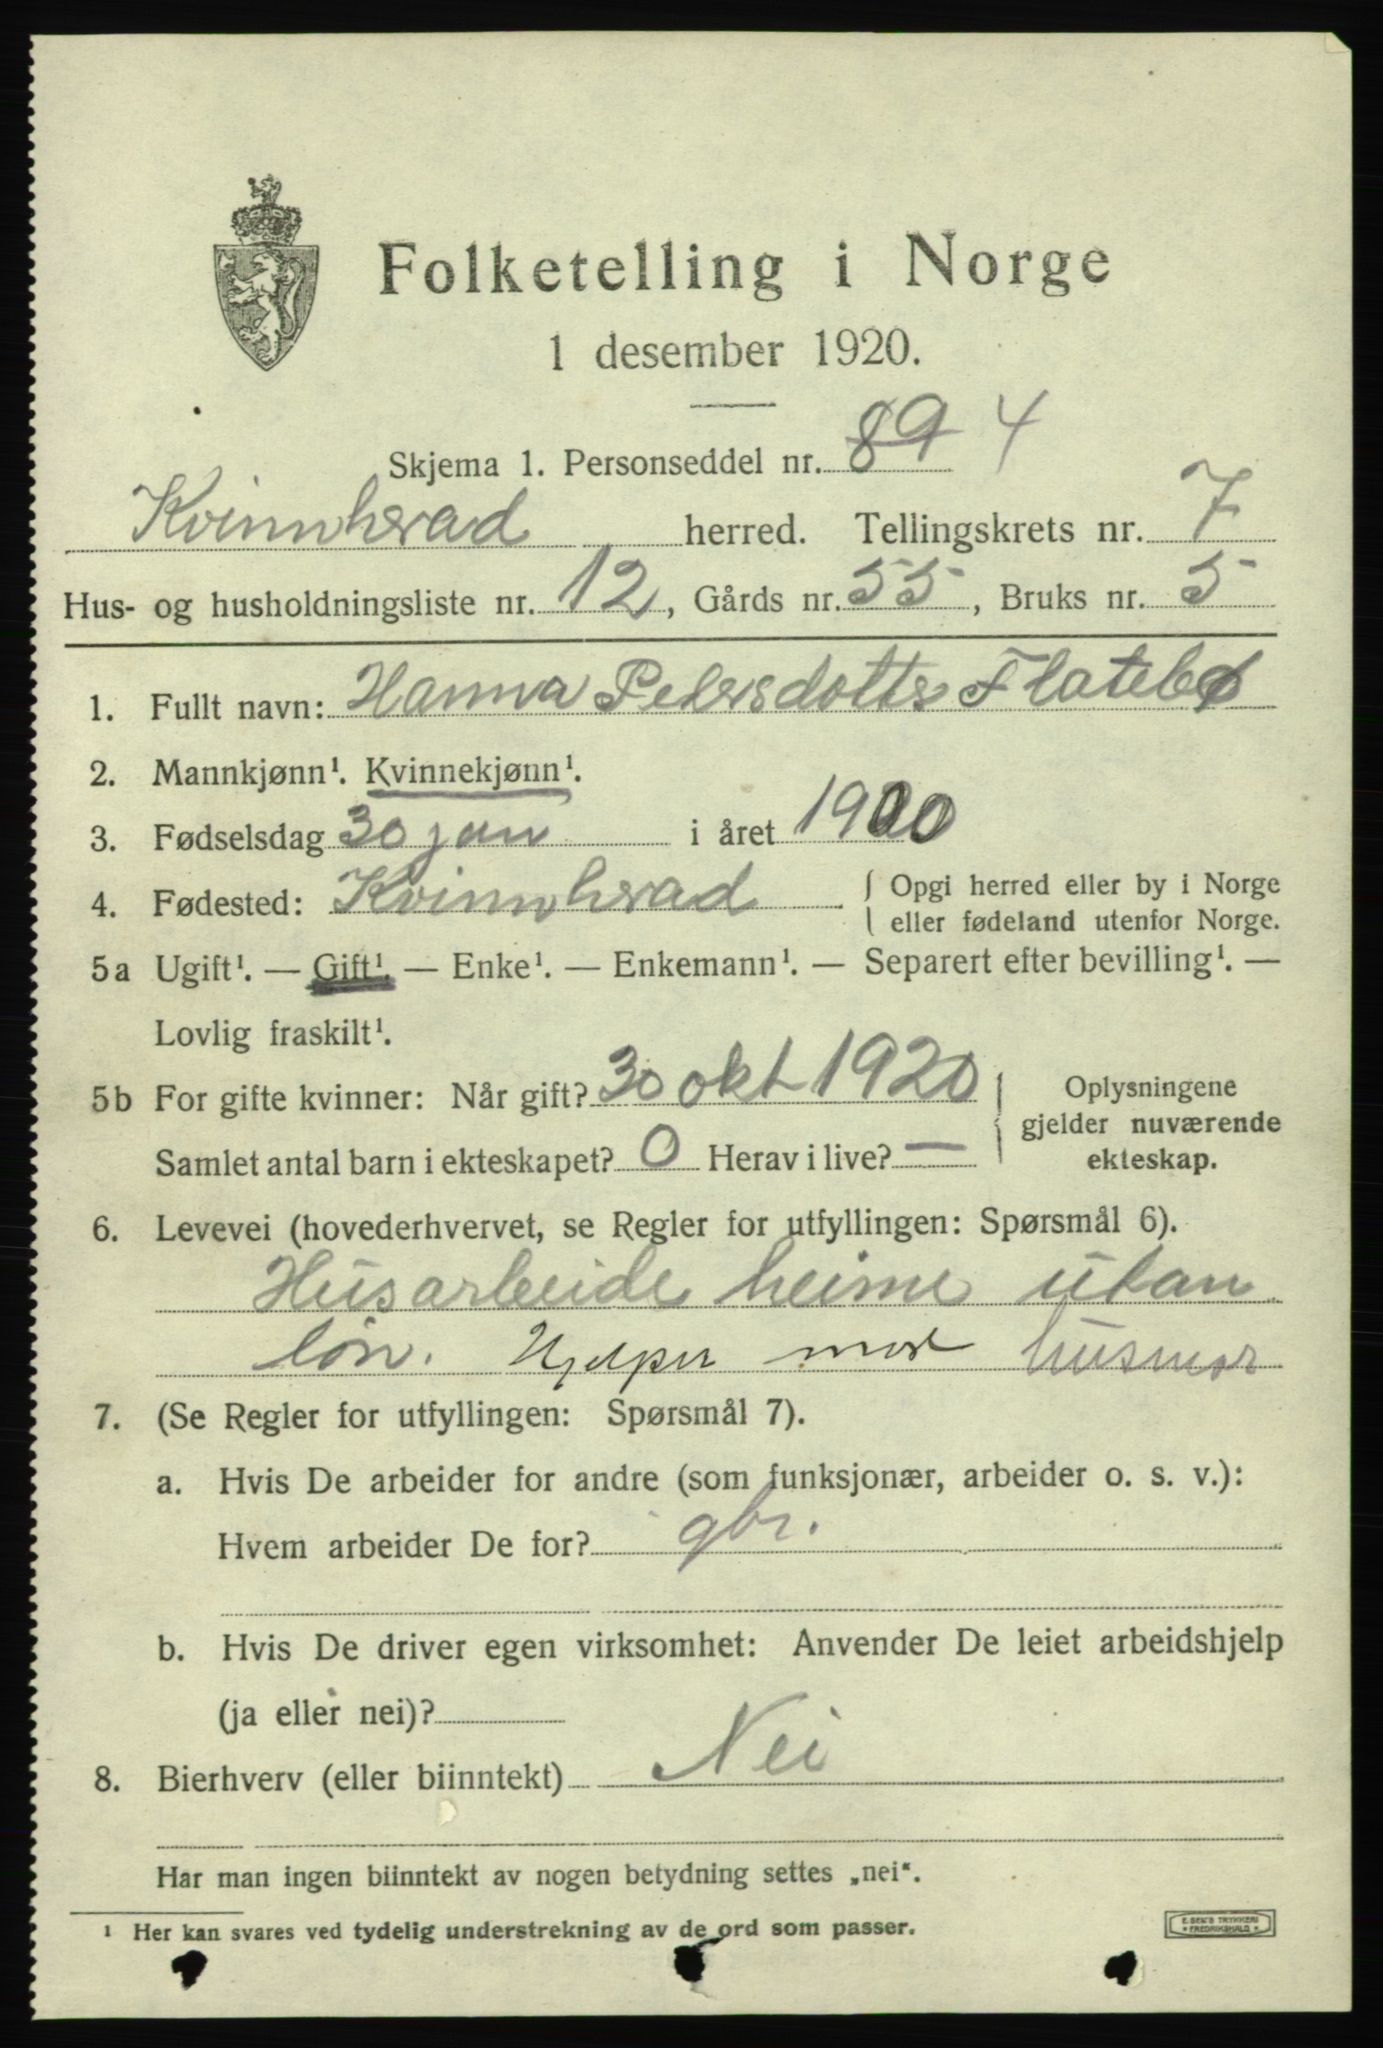 Folketelling i Norge
1 desember 1920.
Skjema 1. Personseddel nr. 89 4
Kvinnherad herred. Tellingskrets nr. 7
Hus- og husholdningsliste nr. 12, Gårds nr. 55, Bruks nr. 5
1. Fullt navn: Hanna Pedersdotter Flatebø
2. Mannkjønn¹. Kvinnekjønn¹.
3. Fødselsdag 30 jan i året 1900
4. Fødested: Kvinnherad { Opgi herred eller by i Norge
eller fødeland utenfor Norge.
5a Ugift¹. — Gift¹. — Enke¹. — Enkemann¹. — Separert efter bevilling¹. —
Lovlig fraskilt¹.
5b For gifte kvinner: Når gift? 30 okt 1920 Oplysningene
gjelder nuværende
Samlet antal barn i ekteskapet? 0 Herav i live? — ekteskap.
6. Levevei (hovederhvervet, se Regler for utfyllingen: Spørsmål 6).
Husarbeide heime utan
løn. Hjelper mor husmor
7. (Se Regler for utfyllingen: Spørsmål 7).
a. Hvis De arbeider for andre (som funksjonær, arbeider o. s. v.):
Hvem arbeider De for? gbr.
b. Hvis De driver egen virksomhet: Anvender De leiet arbeidshjelp
(ja eller nei)?
8. Bierhverv (eller biinntekt) Nei
Har man ingen biinntekt av nogen betydning settes „nei“.
¹ Her kan svares ved tydelig understrekning av de ord som passer.
E. SEM'S TRYKKERI
FREDRIKSHALD